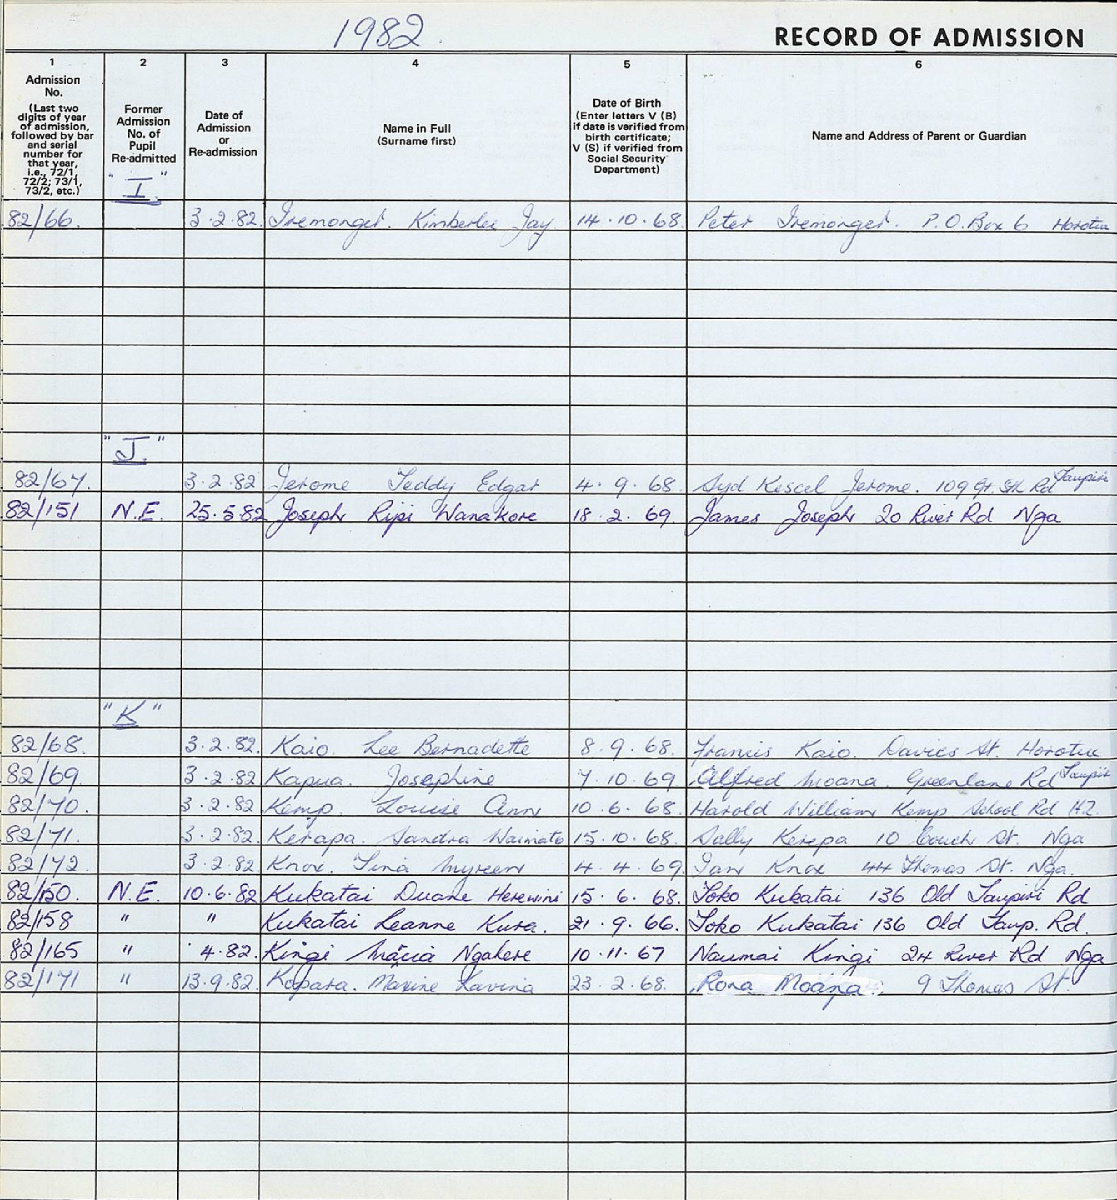 1982.
RECORD OF ADMISSION
1 2 3 4 5 6
Admission No. (Last two digits of year of admission, followed by bar and serial number for that year, i.e., 72/1, 72/2; 73/1, 73/2, etc.)
Former Admission No. of Pupil Re-admitted
Date of Admission or Re-admission
Name in Full (Surname first)
Date of Birth (Enter letters V (B) if date is verified from birth certificate; V (S) if verified from Social Security Department)
Name and Address of Parent or Guardian
"I"
82/66. 3.2.82. Iremonger. Kimberlee Jay 14.10.68. Peter Iremonger. P.O. Box 6 Horotiu
"J."
82/67. 3.2.82. Jerome Teddy Edgar 4.9.68. Syd Kescel Jerome. 109 Gt. Sth Rd Taupiri
82/151 N.E. 25.5.82 Joseph Ripi Wanakore 18.2.69. James Joseph 20 River Rd Nga
"K"
82/68. 3.2.82. Kaio. Lee Bernadette 8.9.68. Francis Kaio. Davies St. Horotiu
82/69 3.2.82 Kapua. Josephine 7.10.69. Alfred Moana. Greenlane Rd Taupiri
82/70. 3.2.82 Kemp Louise Ann 10.6.68. Harold William Kemp School Rd H.2.
82/71. 3.2.82 Kerapa. Sandra Wainato 15.10.68. Sally Kerepa 10 Couch St. Nga
82/72. 3.2.82 Knox. Tina Myreen 4.4.69. Ian Knox 44 Thomas St. Nga.
82/150. N.E. 10.6.82 Kukatai Duane Herewini 15.6.68. Toko Kukatai 136 Old Taupiri Rd
82/158 " " Kukatai Leanne Kura. 21.9.66. Toko Kukatai 136 Old Taup. Rd.
82/165 " 4.82. Kingi Maria Ngahere 10.11.67 Naumai Kingi 24 River Rd Nga
82/171 " 13.9.82. Kopara. Maxine Lavina 23.2.68. Rona Moana. 9 Thomas St.